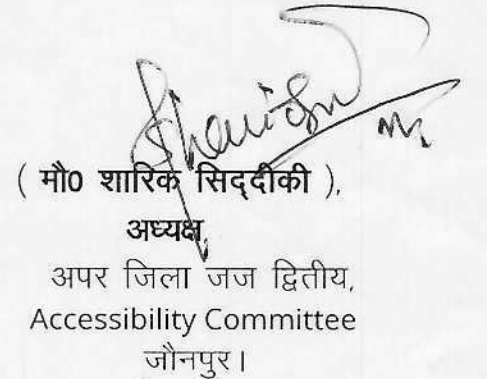 ( मौ0 शारिक सिद्दीकी ),
अध्यक्ष,
अपर जिला जज द्वितीय,
Accessibility Committee
जौनपुर।